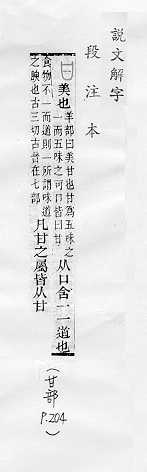 說文解字
段注本
甘美也
羊部曰美甘也甘爲五味之
一而五味之可口皆曰甘
从口含一一道也
食物不一而道則一所謂味道
之腴也古三切古音在七部
凡甘之屬皆从甘
(甘部 P.204)